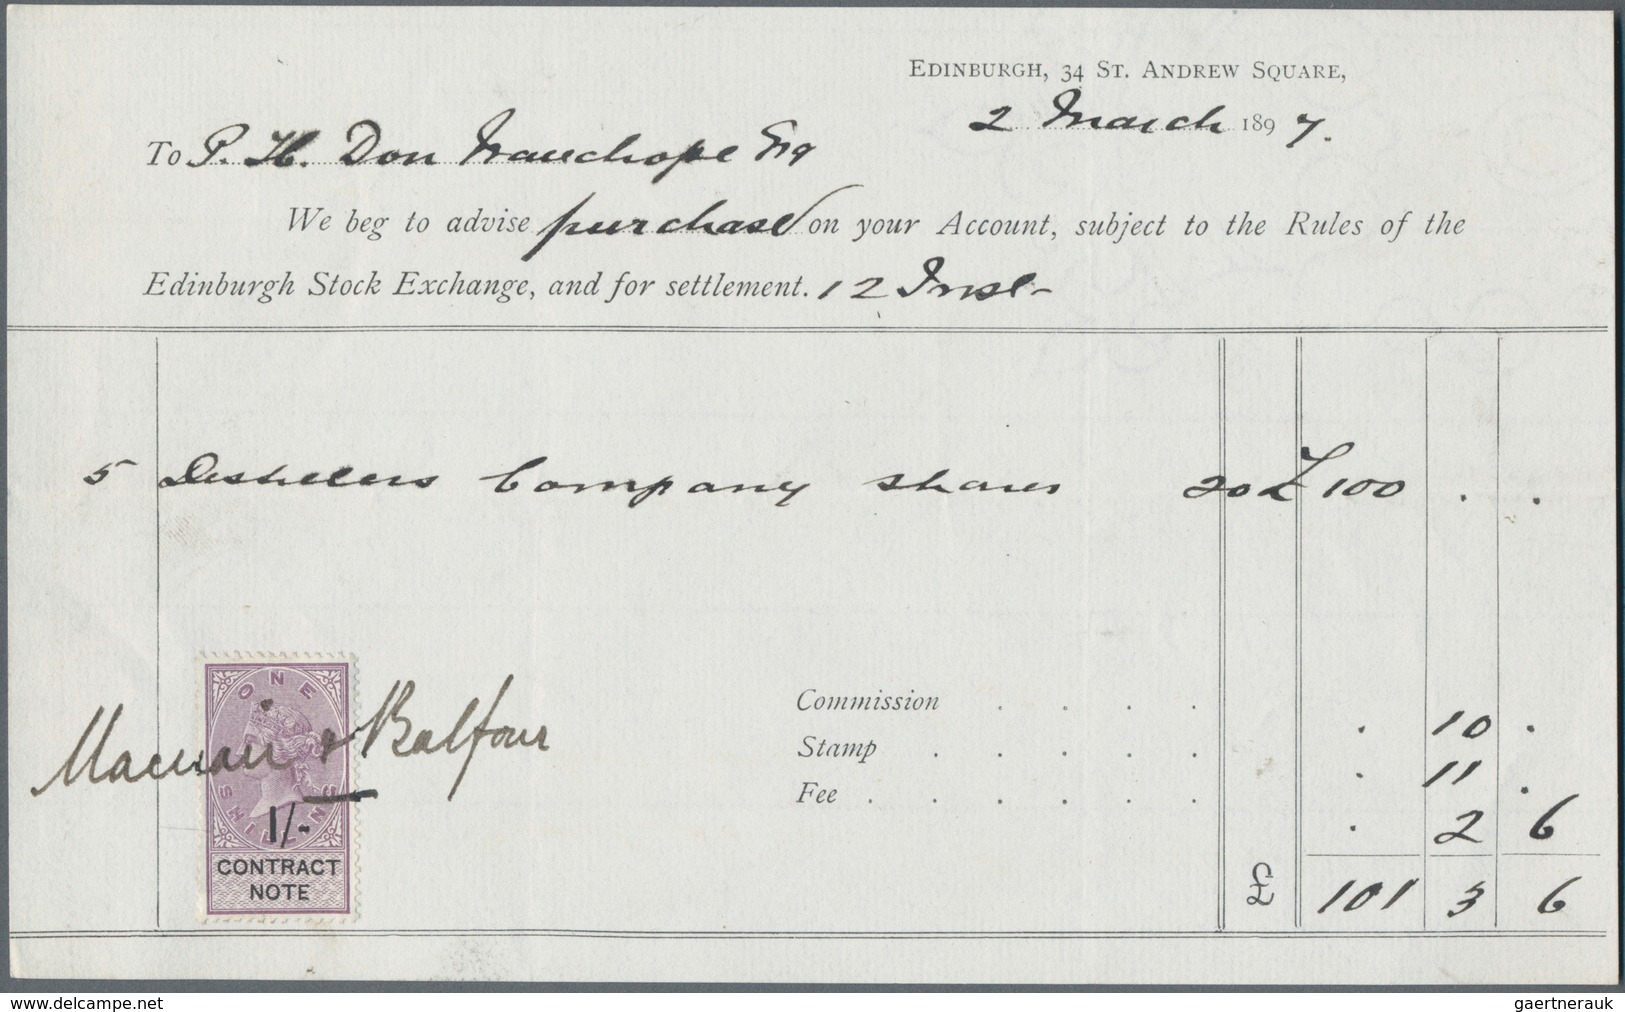 EDINBURGH, 34 ST. ANDREW SQUARE,
2 March 1897.
To P. H. Don Wauchope Esq
We beg to advise purchase on your Account, subject to the Rules of the
Edinburgh Stock Exchange, and for settlement. 12 Inst-
5 Distillers Company shares 20 £ 100 . .
Commission . . . . . 10 .
Stamp . . . . . . 11 .
Fee . . . . . . . 2 6
£ 101 3 6
& Balfour
ONE
SHILLING
1/-
CONTRACT
NOTE
www.delcampe.net
gaertnerauk